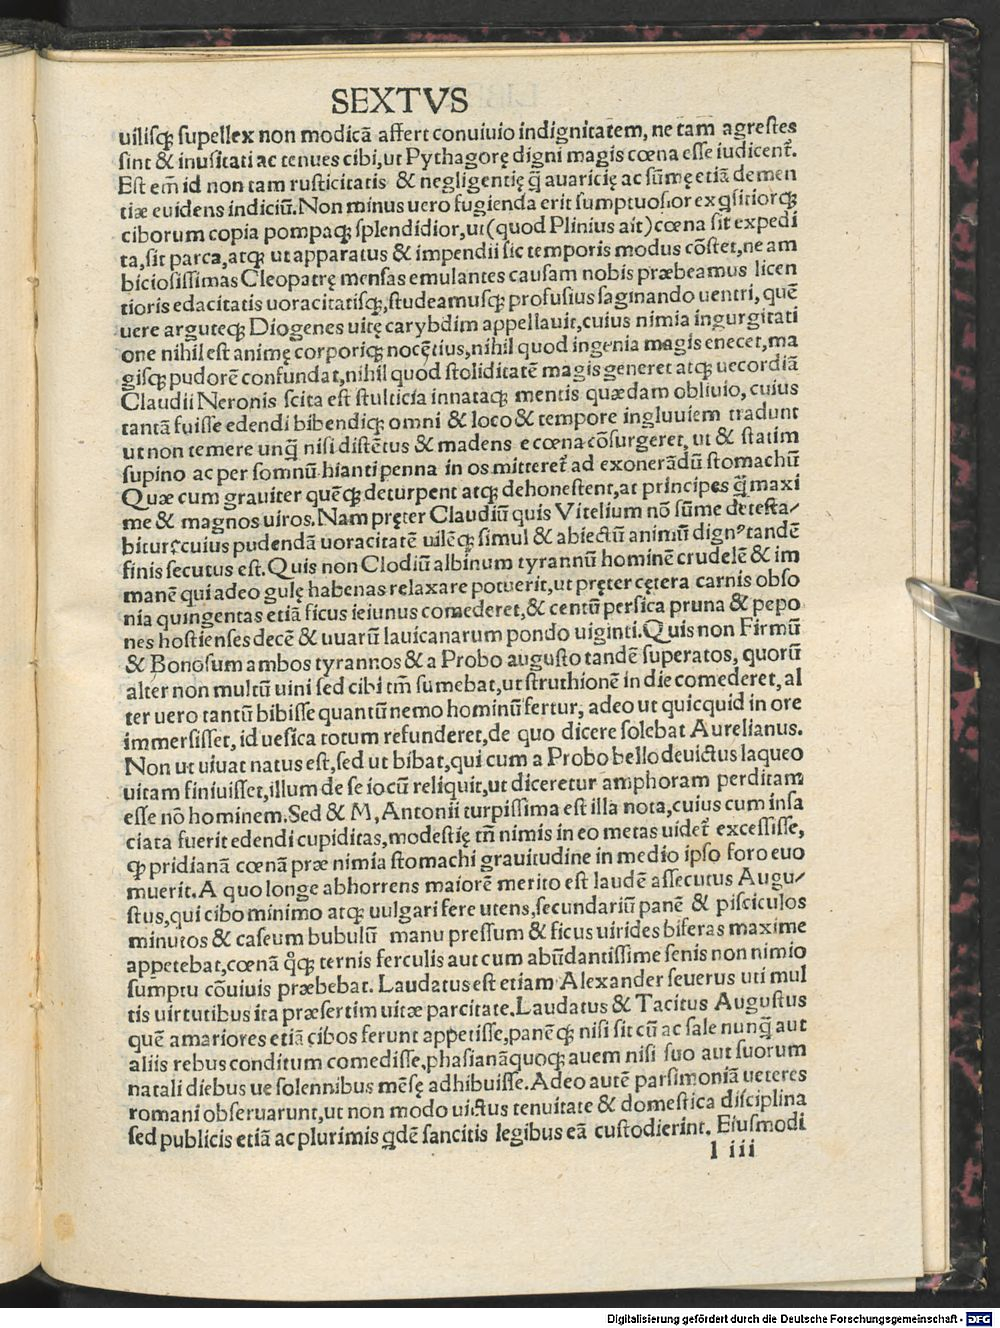 SEXTVS
uilisqꝫ supellex non modicā affert conuiuio indignitatem, ne tam agrestes
sint & inusitati ac tenues cibi, ut Pythagorę digni magis cœna esse iudicent᷑.
Est em̄ id non tam rusticitatis & negligentię q̄̃ auaricię ac sūmę etiā demen
tiæ euidens indiciū. Non minus uero fugienda erit sumptuosior exq̃sitiorqꝫ
ciborum copia pompaqꝫ splendidior, ut (quod Plinius ait) cœna sit expedi
ta, sit parca, atqꝫ ut apparatus & impendii sic temporis modus cōstet, ne am
biciosissimas Cleopatrę mensas emulantes causam nobis præbeamus licen
tioris edacitatis uoracitatisqꝫ, studeamusqꝫ profusius saginando uentri, quē
uere arguteqꝫ Diogenes uitę carybdim appellauit, cuius nimia ingurgitati
one nihil est animę corporiqꝫ nocētius, nihil quod ingenia magis enecet, ma
gisqꝫ pudorē confundat, nihil quod stoliditatē magis generet atqꝫ uecordiā
Claudii Neronis scita est stulticia innataqꝫ mentis quædam obliuio, cuius
tantā fuisse edendi bibendiqꝫ omni & loco & tempore ingluuiem tradunt
ut non temere unq̄̃ nisi distētus & madens e cœna cōsurgeret, ut & statim
supino ac per somnū hianti penna in os mitteret᷑ ad exonerādū stomachū
Quæ cum grauiter quēqꝫ deturpent atqꝫ dehonestent, at principes q̄̃ maxi
me & magnos uiros. Nam pręter Claudiū quis Vitelium nō sūme detesta/
bitur: cuius pudendā uoracitatē uilēqꝫ simul & abiectū animū dignꝰ tandē
finis secutus est. Quis non Clodiū albinum tyrannū hominē crudelē & im
manē qui adeo gulę habenas relaxare potuerit, ut pręter cętera carnis obso
nia quingentas etiā ficus ieiunus comederet, & centū persica pruna & pepo
nes hostienses decē & uuarū lauicanarum pondo uiginti. Quis non Firmū
& Bonosum ambos tyrannos & a Probo augusto tandē superatos, quorū
alter non multū uini sed cibi tm̄ sumebat, ut struthionē in die comederet, al
ter uero tantū bibisse quantū nemo hominū fertur, adeo ut quicquid in ore
immersisset, id uesica totum refunderet, de quo dicere solebat Aurelianus.
Non ut uiuat natus est, sed ut bibat, qui cum a Probo bello deuictus laqueo
uitam finiuisset, illum de se iocū reliquit, ut diceretur amphoram perditam
esse nō hominem. Sed & M, Antonii turpissima est illa nota, cuius cum insa
ciata fuerit edendi cupiditas, modestię tn̄ nimis in eo metas uidet᷑ excessisse,
ꝙ pridianā cœnā præ nimia stomachi grauitudine in medio ipso foro euo
muerit. A quo longe abhorrens maiorē merito est laudē assecutus Augu/
stus, qui cibo minimo atqꝫ uulgari fere utens, secundariū panē & pisciculos
minutos & caseum bubulū manu pressum & ficus uirides biferas maxime
appetebat, cœnā q̊qꝫ ternis ferculis aut cum abūdantissime senis non nimio
sumptu cōuiuis præbebat. Laudatus est etiam Alexander seuerus uti mul
tis uirtutibus ita præsertim uitæ parcitate. Laudatus & Tacitus Augustus
quē amariores etiā cibos ferunt appetisse, panēqꝫ nisi sit cū ac sale nunq̄̃ aut
aliis rebus conditum comedisse, phasianāquoqꝫ auem nisi suo aut suorum
natali diebus ue solennibus mēsę adhibuisse. Adeo autē parsimoniā ueteres
romani obseruarunt, ut non modo uictus tenuitate & domestica disciplina
sed publicis etiā ac plurimis q̇dē sancitis legibus eā custodierint. Eiusmodi
l iii
Digitalisierung gefördert durch die Deutsche Forschungsgemeinschaft - DFG